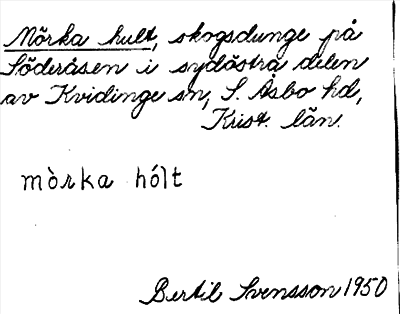 Mörka hult, skogsdunge på
Söderåsen i sydöstra delen
av Kvidinge sn, S. Åsbo hd,
Krist. län.
mòrka hólt
Bertil Svensson 1950